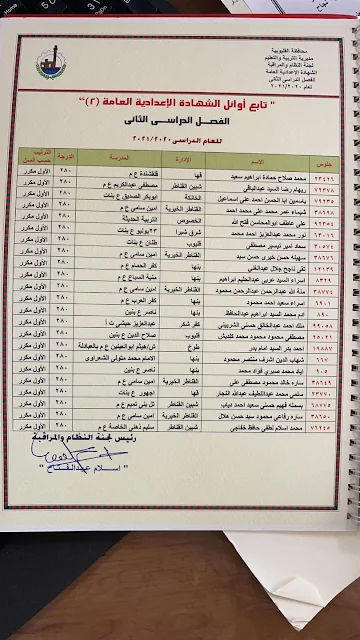 محافظة القليوبية
مديرية التربية والتعليم
لجنة النظام والمراقبة
الشهادة الإعدادية العامة
الفصل الدراسى الثانى
لعام ٢٠٢١/٢٠٢٠
" تابع أوائل الشهادة الإعدادية العامة (٢)"
الفصل الدراسى الثانى
للعام الدراسى ٢٠٢١/٢٠٢٠
جلوس الاسم الادارة المدرسة الدرجة الترتيب حسب السن
محمد صلاح حمادة ابراهيم سعيد قها قلقشندة ع م ٢٨٠ الأول مكرر
ريهام رضا السيد عبدالباقي شبين القناطر مصطفى عبدالكريم ع م ٢٨٠ الأول مكرر
ياسمين ابا الحسن احمد على اسماعيل الخانكة ابوبكر الصديق ع بنات ٢٨٠ الأول مكرر
شيماء عمر محمد على محمد احمد القناطر الخيرية امين سامى ع م ٢٨٠ الأول مكرر
على عاطف ابوالمحاسن فتح الله الخصوص التربية الحديثة ٢٨٠ الأول مكرر
نور محمد عبدالعزيز احمد محمد شرق شبرا ٢٣ يوليو ع بنات ٢٨٠ الأول مكرر
سعاد امير تيسير مصطفى قليوب طنان ع بنات ٢٨٠ الأول مكرر
سهيلة حسن خيرى حسن سيد القناطر الخيرية امين سامى ع م ٢٨٠ الأول مكرر
تقى ناجح جلال عبدالغنى بنها كفر الحمام ع م ٢٨٠ الأول مكرر
اسراء السيد عربى عبدالحليم ابراهيم بنها منية السباع ع م ٢٨٠ الأول مكرر
منة الله عبدالرحمن عبدالرحمن محمود القناطر الخيرية امين سامى ع م ٢٨٠ الأول مكرر
اسراء سعيد احمد محمود بنها كفر العرب ع م ٢٨٠ الأول مكرر
٨٩٠ ادم محمد السيد ابراهيم عبدالغفار بنها ناصر ع بنين ٢٨٠ الأول مكرر
ملك احمد عبدالخالق حسنى الشربينى كفر شكر عبدالعزيز حبشى ت ا ٢٨٠ الأول مكرر
مصطفى محمود محمود محمد كلديش قليوب صلاح الدين ع بنين ٢٨٠ الأول مكرر
احمد بدر السيد امام بدر طوخ ش/هيثم ابوالعينين ع م بالعبادلة ٢٨٠ الأول مكرر
٦٦٧ شهاب الدين اشرف منتصر محمود بنها الامام محمد متولى الشعراوى ٢٨٠ الأول مكرر
٩٠٥ اياد محمد صبرى فؤاد محمد بنها ناصر ع بنين ٢٨٠ الأول مكرر
ساره خالد محمود مصطفى على القناطر الخيرية امين سامى ع م ٢٨٠ الأول مكرر
سلمى محمد عبداللطيف عبدالله النجار قها اجهور ع بنات ٢٨٠ الأول مكرر
بسمله فهيم حسنى سعيد احمد دياب شبين القناطر تل بنى تميم ع م ٢٨٠ الأول مكرر
ساره رفاعى محمود سيد حسن هلال القناطر الخيرية امين سامى ع م ٢٨٠ الأول مكرر
محمد اسلام لطفى حافظ خفاجى شبين القناطر سليم ذهنى الخاصة ع م ٢٨٠ الأول مكرر
رئيس لجنة النظام والمراقبة
" اسلام عبدالفتاح "